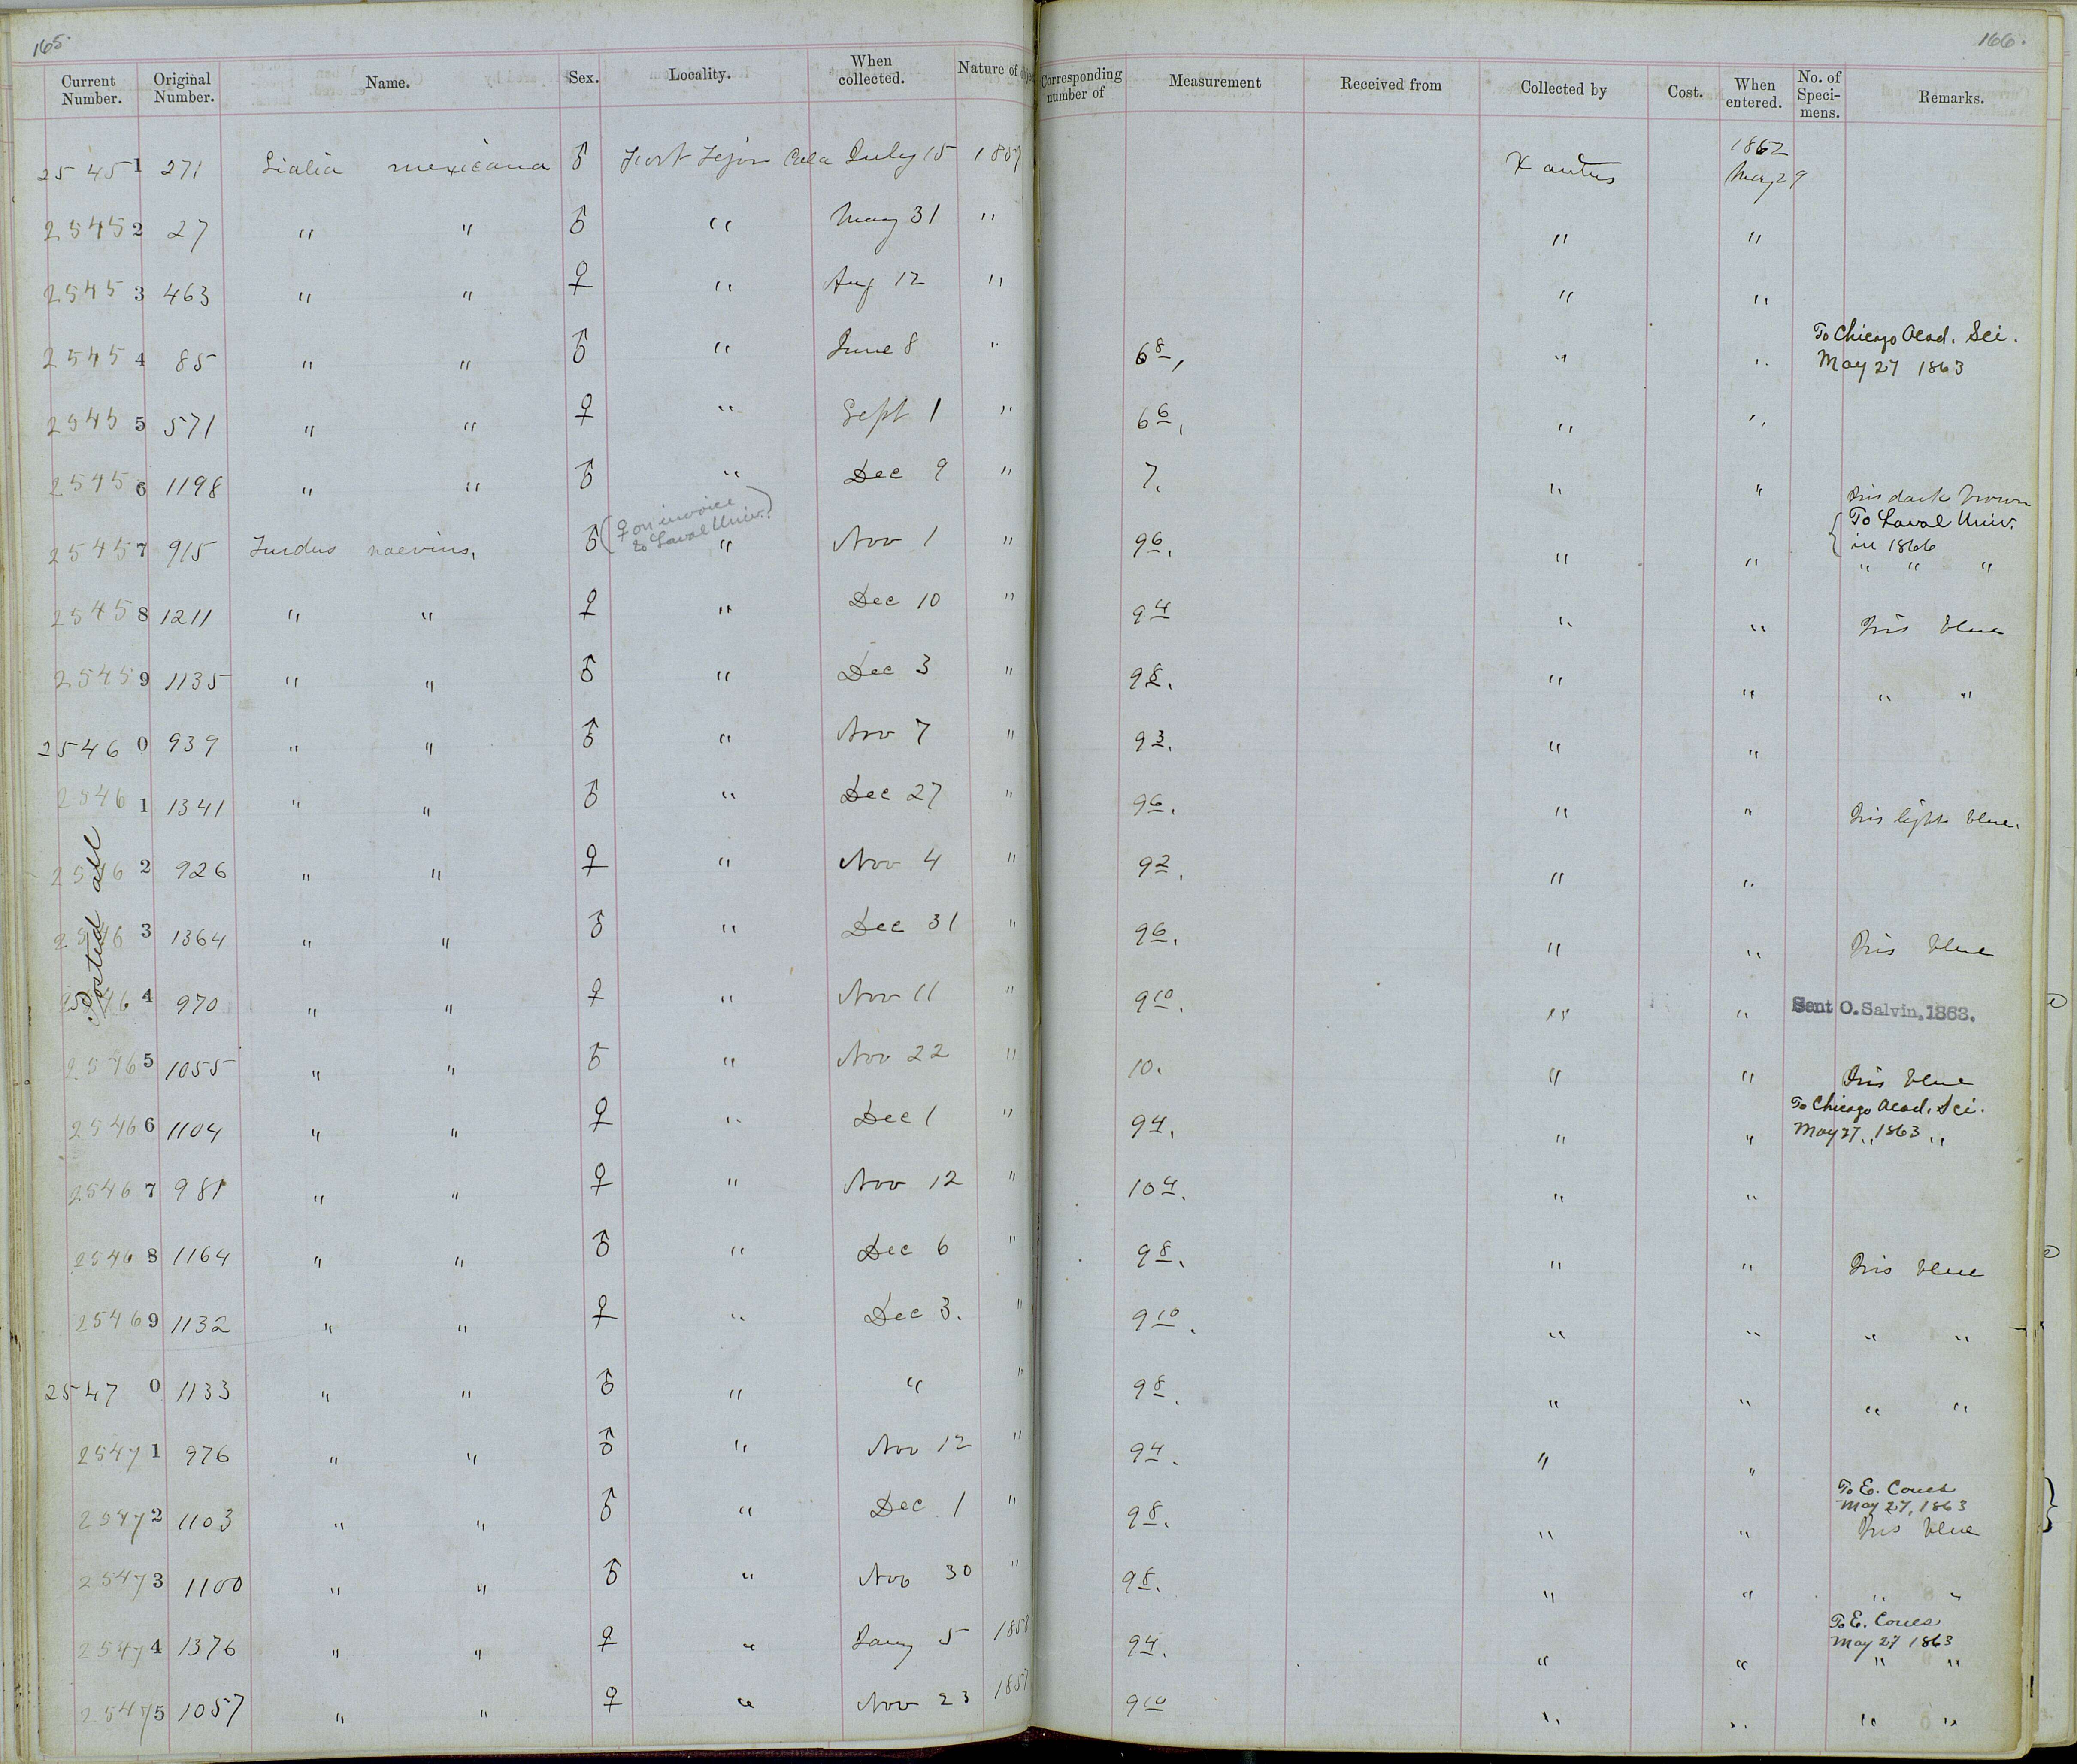 165.
166.
Current Number. Original Number. Name. Sex. Locality. When collected. Nature of Corresponding number of Measurement Received from Collected by Cost. When entered. No. of Specimens. Remarks.
25451 271 Sialia mexicana ♂ Fort Tejon Cala July 15 1857 Xantus 1862 May 29
25452 27 " " ♂ " May 31 " " "
25453 463 " " ♀ " Aug 12 " " "
25454 85 " " ♂ " June 8 " 6 8, " " To Chicago Acad. Sci. May 27 1863
25455 571 " " ♀ " Sept 1 " 6 6, " "
25456 1198 " " ♂ " Dec 9 " 7. " " Iris dark brown
25457 915 Turdus naevius, ♂ (♀ on invoice to Laval Univ.) " Nov 1 " 9 6. " " { To Laval Univ. in 1866 " " "
25458 1211 " " ♀ " Dec 10 " 9 4 " " Iris blue
25459 1135 " " ♂ " Dec 3 " 9 8. " " " "
25460 939 " " ♂ " Nov 7 " 9 3. " "
25461 1341 " " ♂ " Dec 27 " 9 6. " " Iris light blue.
25462 926 " " ♀ " Nov 4 " 9 2. " "
Posted all
25463 1364 " " ♂ " Dec 31 " 9 6. " " Iris blue
25464 970 " " ♀ " Nov 11 " 9 10. " " Sent O. Salvin, 1863.
25465 1055 " " ♂ " Nov 22 " 10. " " Iris blue
25466 1104 " " ♀ " Dec 1 " 9 4. " " To Chicago Acad. Sci. May 27, 1863 " "
25467 981 " " ♀ " Nov 12 " 10 4. " "
25468 1164 " " ♂ " Dec 6 " 9 8. " " Iris blue
25469 1132 " " ♀ " Dec 3. " 9 10. " " " "
25470 1133 " " ♂ " " " 9 8. " " " "
25471 976 " " ♂ " Nov 12 " 9 4. " "
25472 1103 " " ♂ " Dec 1 " 9 8. " " To E. Coues May 27, 1863 Iris blue }
25473 1100 " " ♂ " Nov 30 " 9 8. " " " "
25474 1376 " " ♀ " Jany 5 1858 9 4. " " To E. Coues May 27 1863 " "
25475 1057 " " ♀ " Nov 23 1857 9 10 " " " "